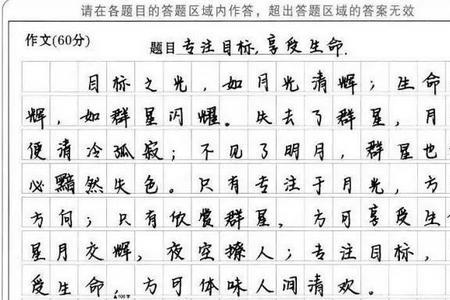 请在各题目的答题区域内作答，超出答题区域的答案无效
作文(60分)
题目 专注目标，享受生命.
目标之光，如月光清辉；生命
辉，如群星闪耀。失去了群星，月
便清冷孤寂；不见了明月，群星也
必黯然失色。只有专注于月光，方
方向；只有欣赏群星，方可享受生
星月交辉，夜空撩人；专注目标，
受生命，方可体味人间清欢。